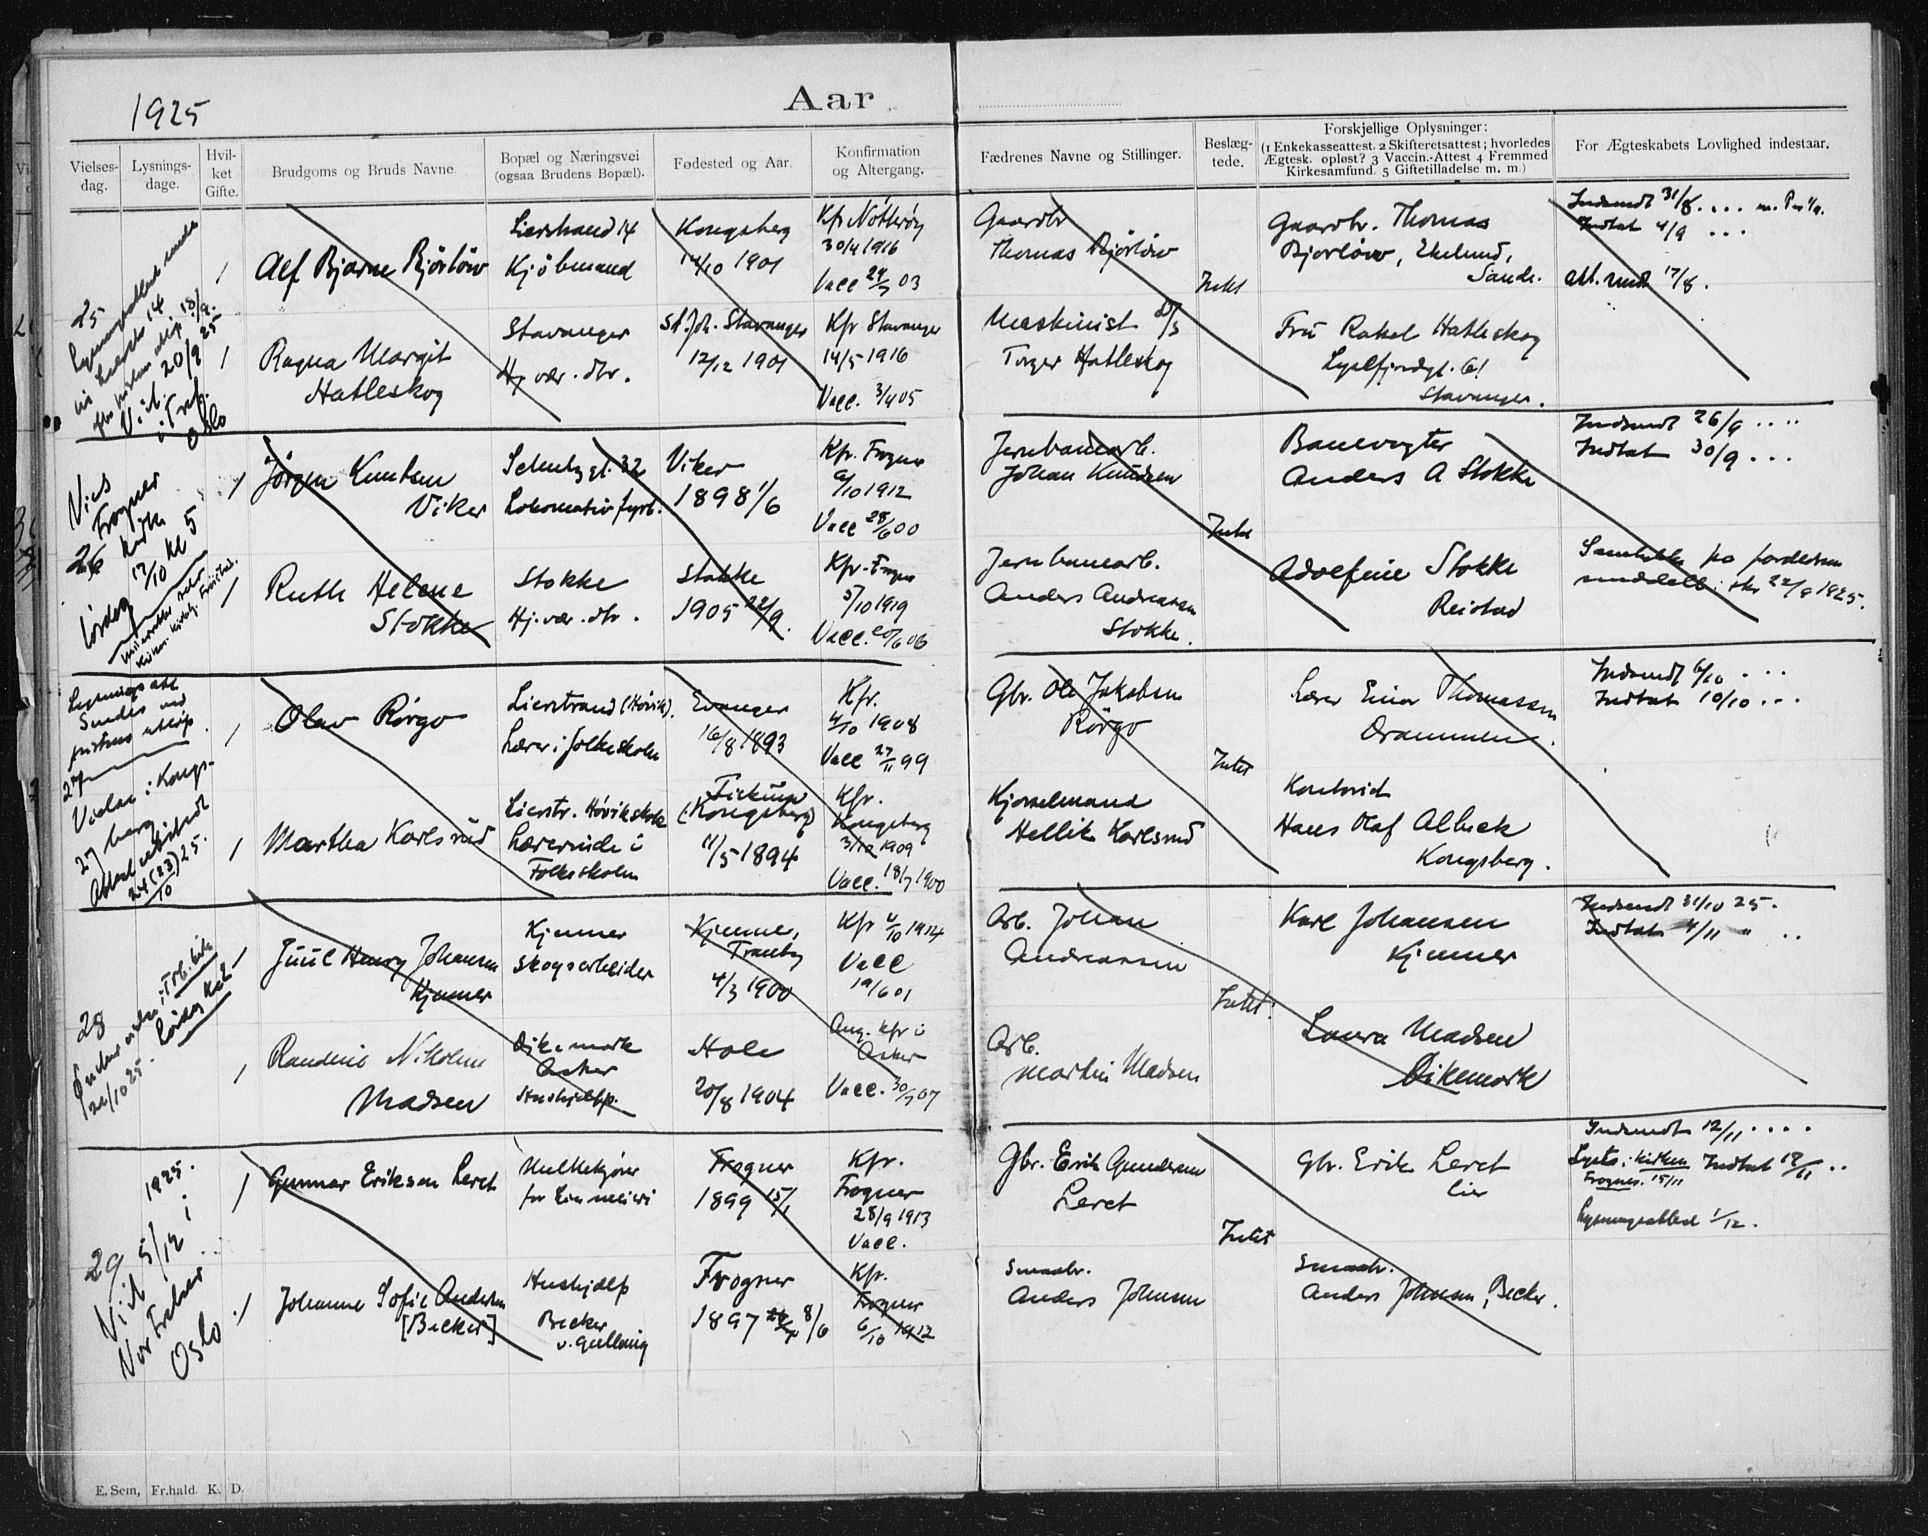 1925
Aar
Vielses-dag.
Lysnings-dage.
Hvil-ket Gifte.
Brudgoms og Bruds Navne.
Bopæl og Næringsvei (ogsaa Brudens Bopæl).
Fødested og Aar.
Konfirmation og Altergang.
Fædrenes Navne og Stillinger.
Beslæg-tede.
Forskjellige Oplysninger: (1 Enkekasseattest. 2 Skifteretsattest; hvorledes Ægtesk. opløst? 3 Vaccin.-Attest 4 Fremmed Kirkesamfund. 5 Giftetilladelse m. m.)
For Ægteskabets Lovlighed indestaar.
25
20/9 25
Oslo
1
Alf Bjarne Bjørløw
Lierstrand 14
Kjøbmand
Kongsberg
14/10 1901
Kfr Nøtterøy
30/4 1916
Vacc 24/7 03
Gaardbr
Thomas Bjørløw
Intet
Gaardbr. Thomas
Bjørløw, Ekelund,
Sande.
Indsendt 31/8
Indtat 4/9
17/8.
1
Ragna Margit
Hatleskog
Stavanger
Hj. vær. dtr.
St. Joh. Stavanger
12/12 1901
Kfr Stavanger
14/5 1916
Vacc. 3/4 05
Maskinist D/S
Torger Hatleskog
Fru Rakel Hatleskog
Lysefjordgt. 61
Stavanger.
26
Vies
Frogner
Kirke
17/10 kl 5
lørdag
1
Jørgen Knutsen
Viker
Schultzgt. 32
Lokomotivfyrb.
Viker
1898 1/6
Kfr. Frogner
6/10 1912
Vacc 28/6 00
Jernbanearb.
Johan Knudsen
Intet
Banevogter
Anders A Stokke
Indsendt 26/9
Indtat 30/9
1
Ruth Helene
Stokke
Stokke
Hj. vær. dtr.
Stokke
1905 22/9.
Kfr. Frogner
5/10 1919
Vacc. 20/6 06
Jernbanearb.
Anders Andreassen
Stokke.
Adolfine Stokke
Reistad
Samtykke fra forældrene
22/9 1925.
27
Vielse i Kongs-
berg
24(23)/10 25.
1
Olav Rørgo
Lierstrand (Høvik).
Lærer i folkeskolen
Evanger
16/8 1893
Kfr.
4/10 1908
Vacc 27/11 99
Gbr. Ole Jakobsen
Rørgo
Intet
Lærer Einar Thomassen
Drammen.
Indsendt 6/10
Indtat 10/10
1
Martha Karlsrud
Lierstr. Høvikskole
Lærerinde i
Folkeskolen
(Kongsberg)
11/5 1894
Kfr.
Kongsberg
3/10 1909
Vacc. 18/7 1900
Kjørselmand
Hellik Karlsrud
Kontorist
Hans Olaf Albeck
Kongsberg.
28
1
Juul Henry Johansen
Kjenner
Kjenner
Skogsarbeider
Kjenner,
Tranby
4/3 1900
Kfr 4/10 1914
Vacc
19/6 01
Arb. Johan
Andreassen
Intet.
Karl Johansen
Kjenner
Indsendt 31/10 25.
Indtat 4/11
1
Randine Nikoline
Madsen
Dikemark
Asker
Hushjelp.
Hole
20/8 1904
Ang. kfr i
Asker
Vacc. 30/7 07
Arb.
Martin Madsen
Laura Madsen
Dikemark
1925.
29
Viet 5/12 i
Vor Frelser
Oslo
1
Gunnar Eriksen Leret
Melkekjører
for Lier meieri
Frogner
1899 15/1
Kfr.
Frogner
28/9 1913
Vacc.
Gbr. Erik Gundersen
Leret
Intet
Gbr. Erik Leret
Lier
Indsendt 12/11
Lyst i kirken Indtat 12/11
Frogner. 15/11
Lysningsattest 1/12.
1
Johanne Sofie Andersen
[Becker]
Hushjælp
Becker
v. Gullaug
Frogner
1897 8/6
Kfr.
Frogner
6/10 1912
Smaabr.
Anders Johnsen
Smaabr.
Anders Johnsen, Becker.
E. Sem, Fr.hald. K. D.